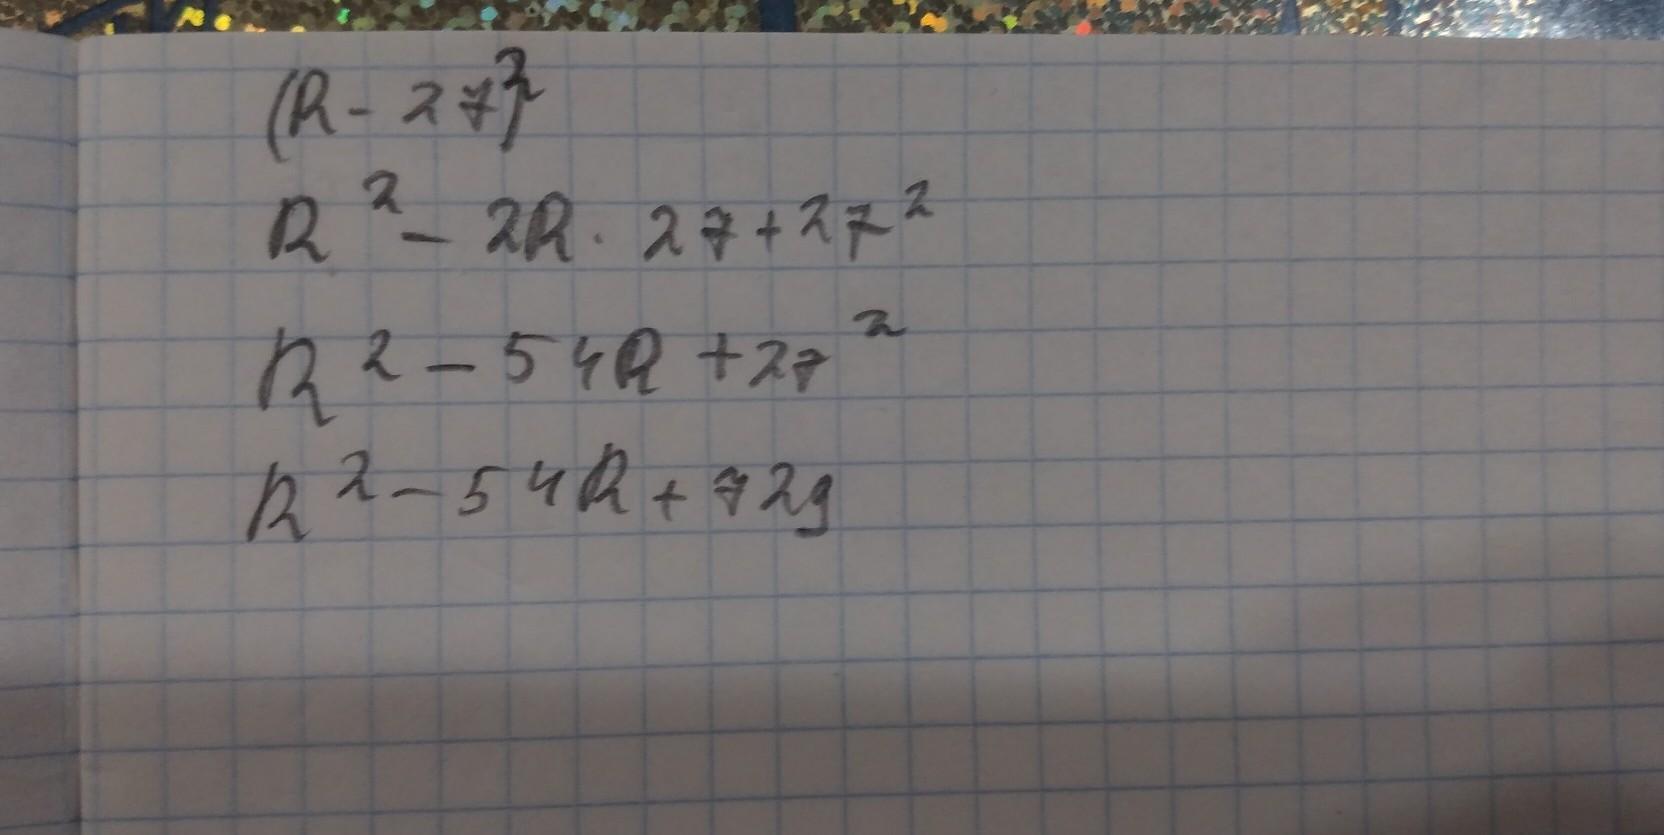 (R - 27)²
R² - 2R · 27 + 27²
R² - 54R + 27²
R² - 54R + 729